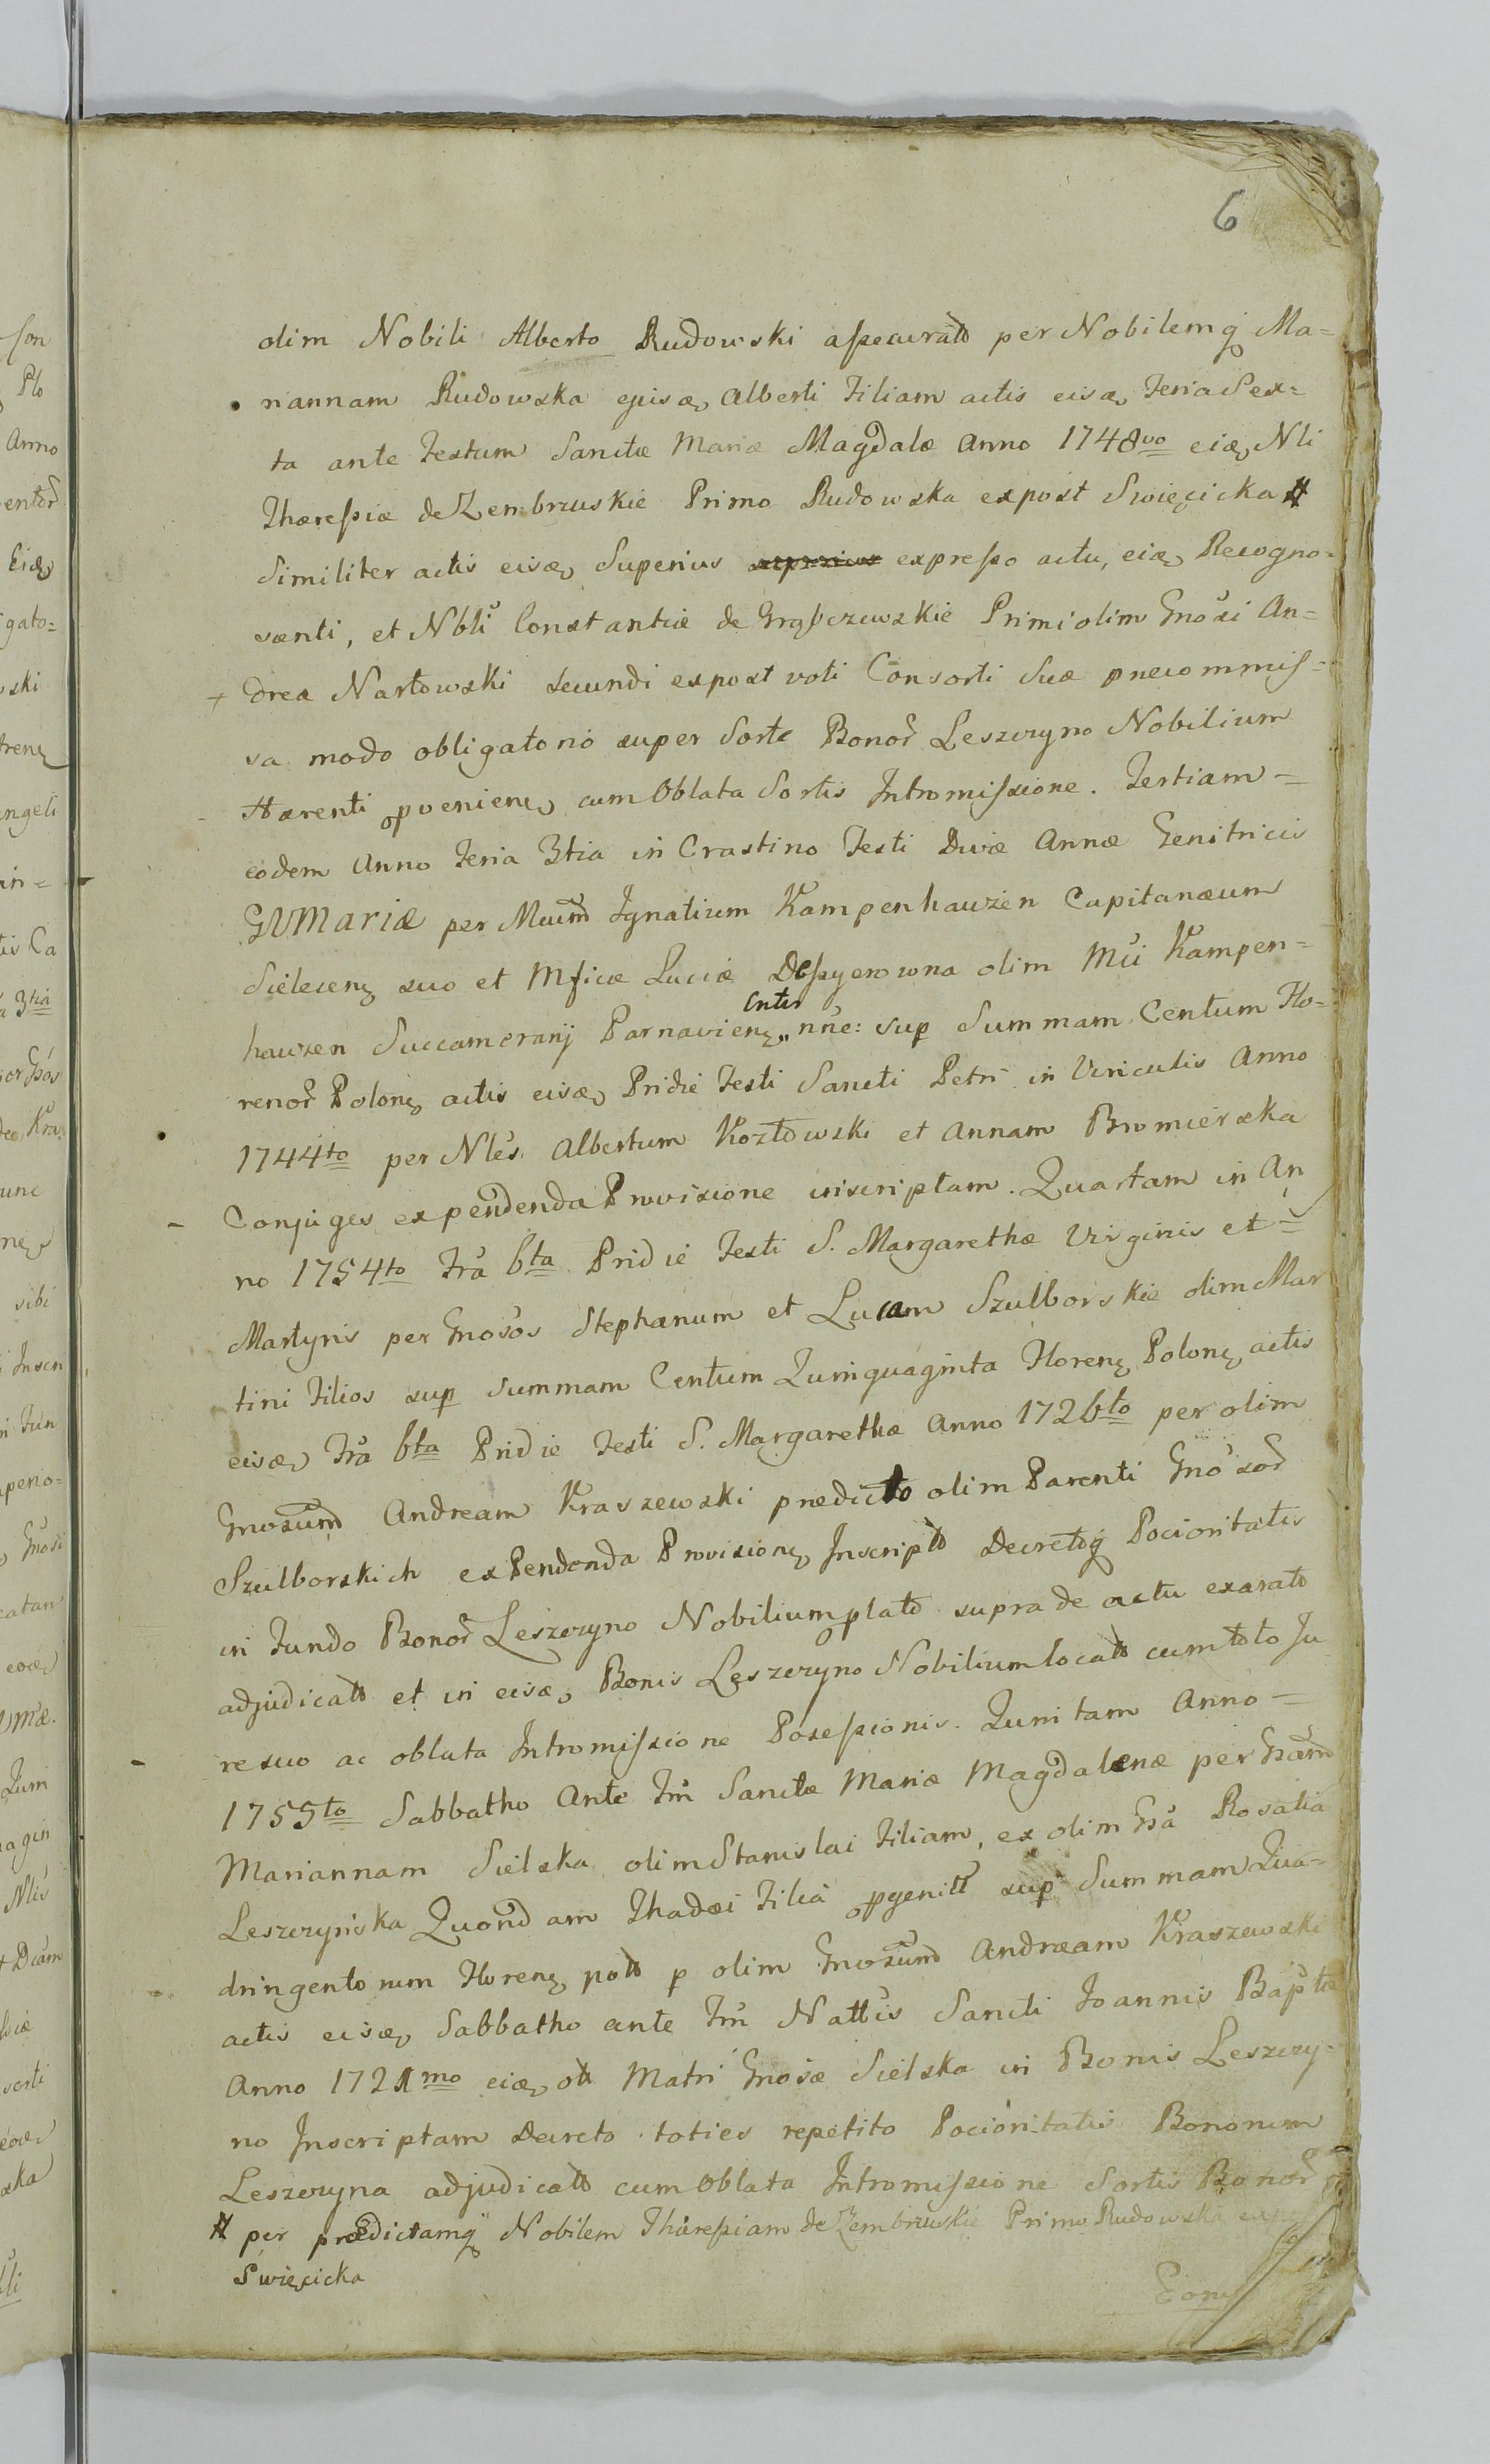 6
olim Nobili Alberto Rudowski assecurato per Nobilemq Ma=
riannam Rudowska ejusd Alberti Filiam actis eisd Feria Sex=
ta ante Festum Sanctæ Mariæ Magdalæ Anno 1748vo eid Nli
Thæressiæ de Zembrzuskie Primo Rudowska expost Swięcicka #
Similiter actis eisd Superius expresso actu, eid Recogno=
scenti, et Nbli Constantiæ de Grąbczewskie Primi olim Gnosi An=
dreæ Nartowski secundi expost voti Consorti Suæ præcommis=
sa modo obligatorio super Sorte Bonor Leszczyno Nobilium
Hærenti provenien cum Oblata Sortis Intromissione. Tertiam =
eodem Anno Feria 3tia in Crastino Festi Divæ Annæ Genitricis
GVMariæ per Mcum Ignatium Kampenhauzen Capitanæum
Sielecen suo et Mficæ Luciæ olim Mci Kampen=
hauzen Succamerarij Parnavien Cntis nne: sup Summam Centum Flo=
renor Polon actis eisd Pridie Festi Sancti Petri in Vinculis Anno
1744to per Nles Albertum Kozłowski et Annam Bromierska
Conjuges expendenda Provisione inscriptam. Quartam in An
no 1754to Fra 6ta Pridie Festi S. Margarethæ Virginis et =
Martyris per Gnosos Stephanum et Lucam Szulborskie olim Mar
tini Filios sup Summam Centum Quinquaginta Floren Polon actis
eisd Fra 6ta Pridie Festi S. Margarethæ Anno 1726to per olim
Gnosum Andream Kraszewski prædicto olim Parenti Gnosor
Szulborskich exPendenda Provision Inscripto Decretoq Pocioritatis
in Fundo Bonor Leszczyno Nobilium plato supra de actu exarato
adjudicato et in eisd Bonis Leszczyno Nobilium locato cum toto Ju
re suo ac oblata Intromissione Possessionis. Quintam Anno =
1755to Sabbatho Ante Fm Sanctæ Mariæ Magdalenæ per Gsam
Mariannam Sielska olim Stanislai Filiam, ex olim Gsa Rosalia
Leszczynska Quondam Thadæi Filia progenit sup Summam Qua=
dringentorum Floren p olim Gnosum Andræam Kraszewski
actis eisd Sabbatho ante Fm Nattis Sancti Joannis Baptæ
Anno 1721mo eid Matri Gnosæ Sielska in Bonis Leszczy=
no Inscriptam Decreto toties repetito Pocioritatis Bonorum
Leszczyna adjudicato cum Oblata Intromissione Sortis Bonor
# per prædictamq Nobilem Thæressiam de Zembrzuskie Primo Rudowska
Swięcicka